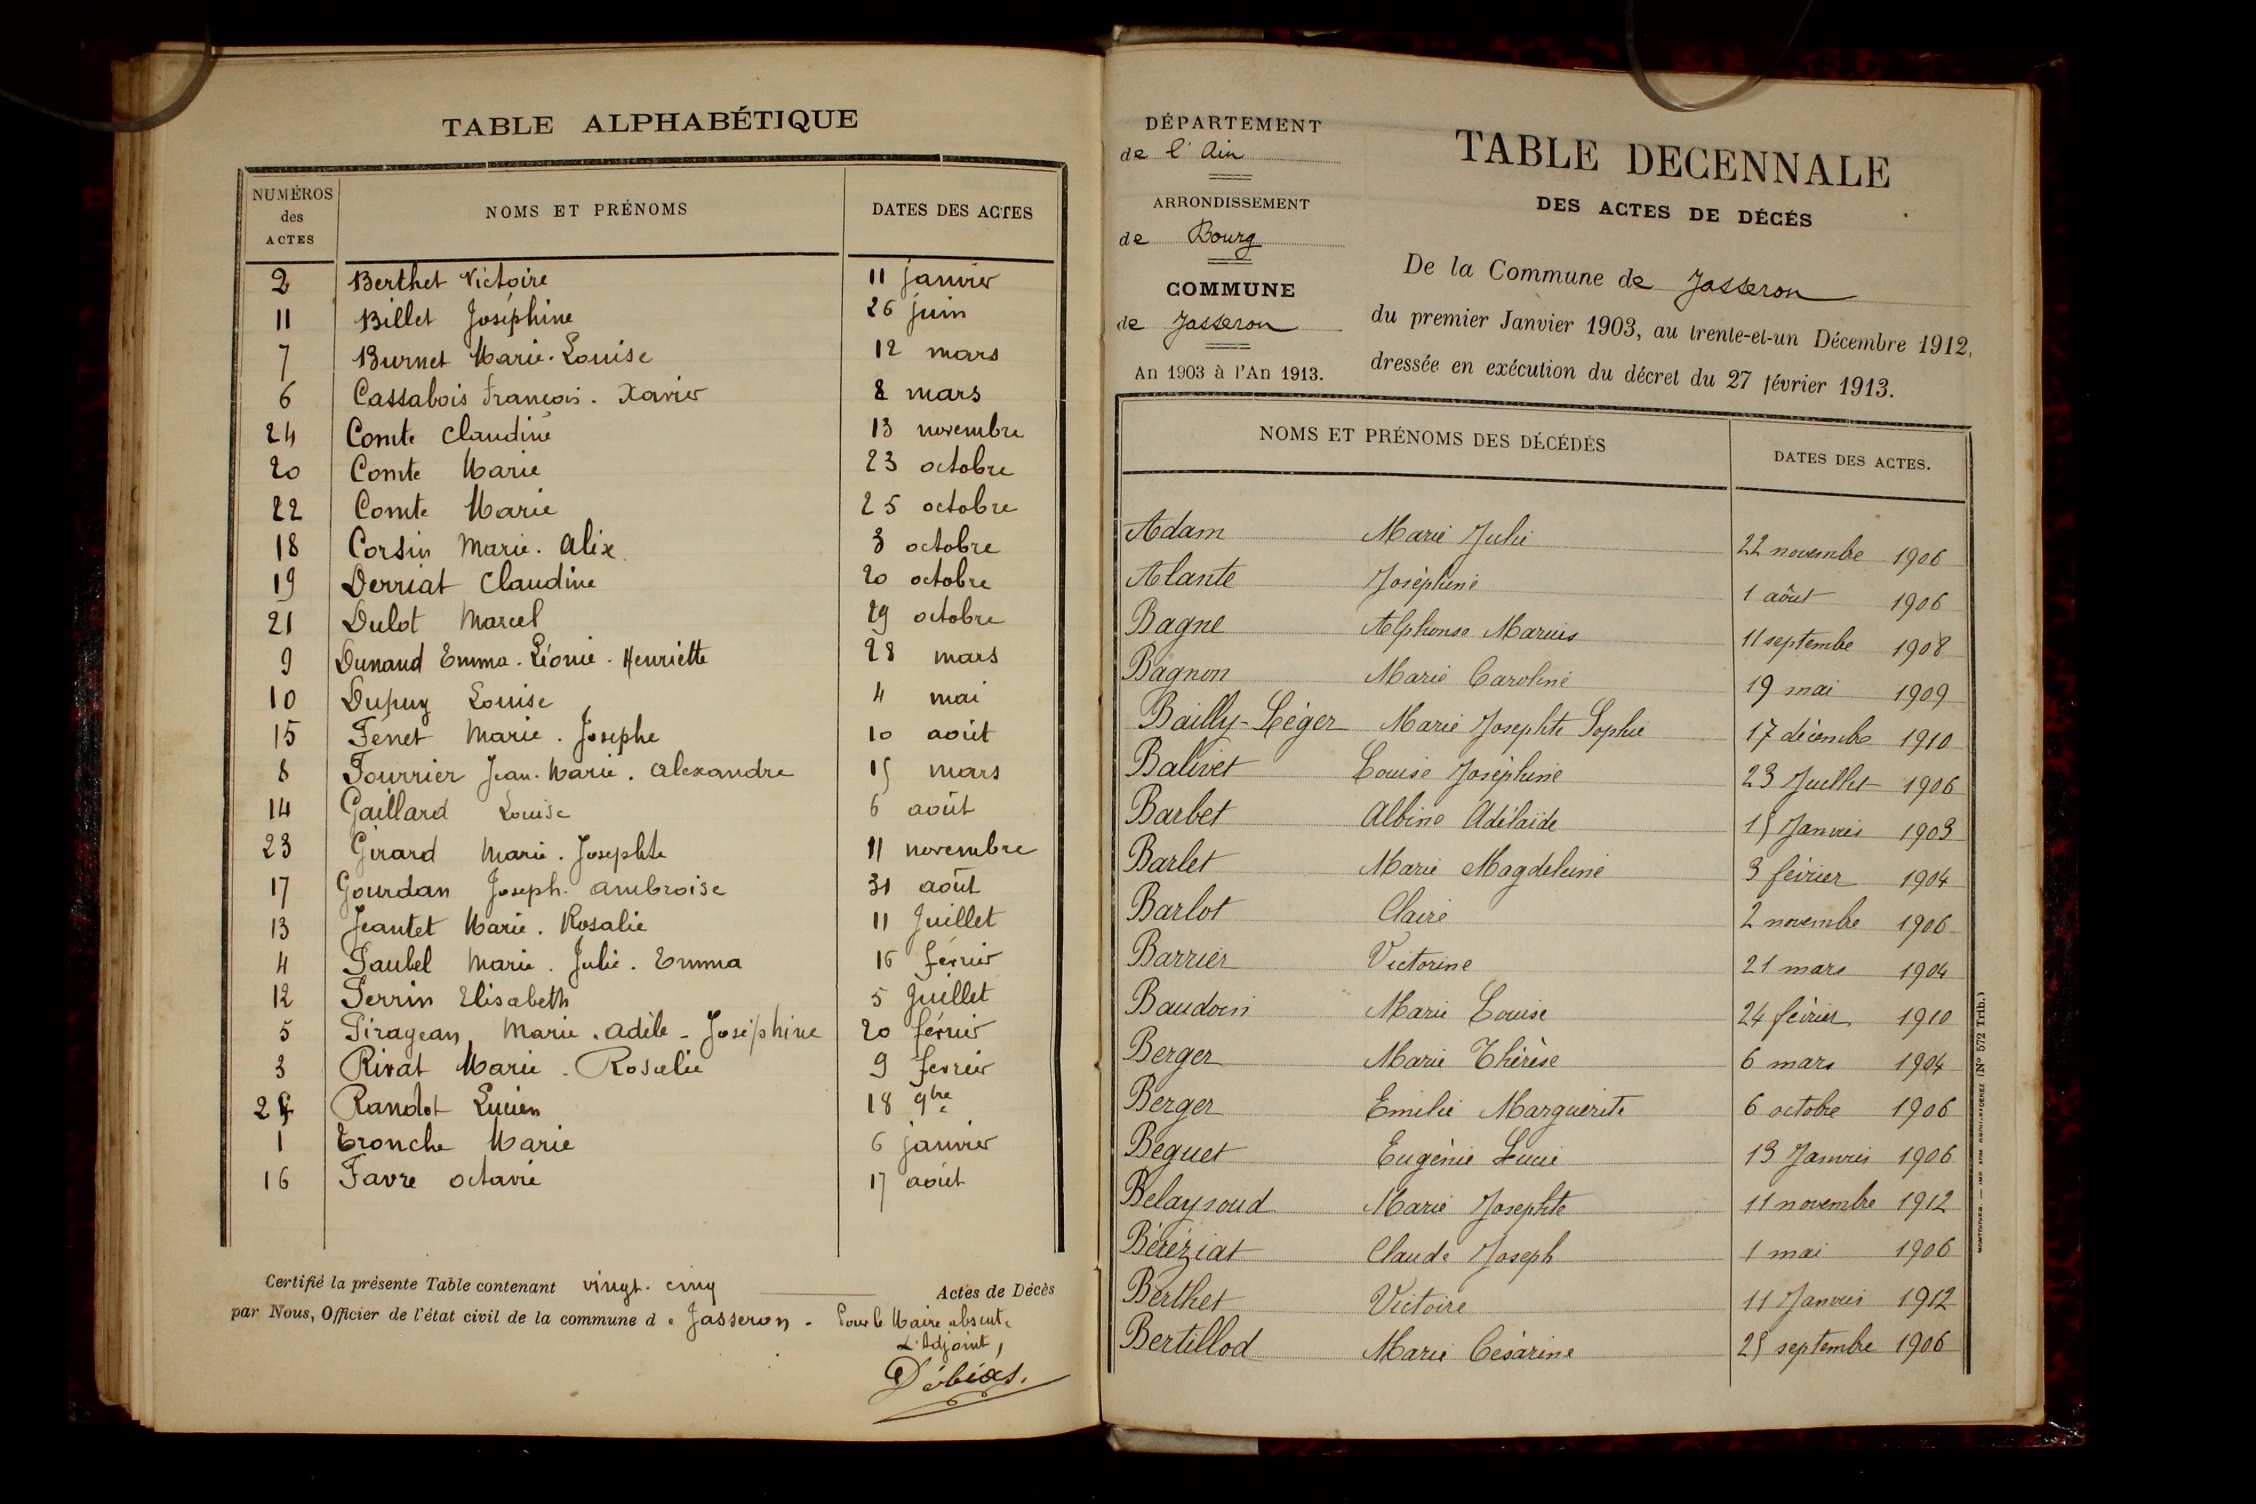 TABLE ALPHABÉTIQUE
NUMÉROS des ACTES NOMS ET PRÉNOMS DATES DES ACTES
2 Berthet Victoire 11 janvier
11 Billet Joséphine 26 juin
7 Burnet Marie-Louise 12 mars
6 Cassabois François-Xavier 8 mars
24 Comte Claudine 13 novembre
20 Comte Marie 23 octobre
22 Comte Marie 25 octobre
18 Corsin Marie-Alix 3 octobre
19 Derriat Claudine 20 octobre
21 Dulot Marcel 29 octobre
9 Dunaud Emma-Léonie-Henriette 28 mars
10 Dupuy Louise 4 mai
15 Fénet Marie-Josephe 10 août
8 Fourrier Jean-Marie-Alexandre 15 mars
14 Gaillard Louise 6 août
23 Girard Marie-Josephte 11 novembre
17 Gourdan Joseph-Ambroise 31 août
13 Jeantet Marie-Rosalie 11 Juillet
4 Paubel Marie-Julie-Emma 16 février
12 Perrin Elisabeth 5 Juillet
5 Pirajean Marie-Adèle-Joséphine 20 février
3 Rivat Marie-Rosalie 9 fevrier
Randot Lucien 18 9bre
1 Tronche Marie 6 janvier
16 Favre Octavie 17 août
Certifié la présente Table contenant vingt-cinq Actes de Décès
par Nous, Officier de l'état civil de la commune de Jasseron. Pour le Maire absent.
L'Adjoint,
Débias.
DÉPARTEMENT
de l'Ain
ARRONDISSEMENT
de Bourg
COMMUNE
de Jasseron
An 1903 à l'An 1913.
TABLE DECENNALE
DES ACTES DE DÉCÉS
De la Commune de Jasseron
du premier Janvier 1903, au trente-et-un Décembre 1912,
dressée en exécution du décret du 27 février 1913.
NOMS ET PRÉNOMS DES DÉCÉDÉS DATES DES ACTES.
Adam Marie Julie 22 novembre 1906
Alante Joséphine 1 août 1906
Bagne Alphonse Marius 11 septembre 1908
Bagnon Marie Caroline 19 mai 1909
Bailly-Léger Marie Josephte Sophie 17 décembre 1910
Balivet Louise Joséphine 23 Juillet 1906
Barbet Albine Adélaïde 15 Janvier 1903
Barlet Marie Magdeleine 3 février 1904
Barlot Claire 2 novembre 1906
Barrier Victorine 21 mars 1904
Baudoin Marie Louise 24 février 1910
Berger Marie Thérèse 6 mars 1904
Berger Emilie Marguerite 6 octobre 1906
Beguet Eugénie Lucie 13 Janvier 1906
Belaysoud Marie Josephte 11 novembre 1912
Béréziat Claude Joseph 1 mai 1906
Berthet Victoire 11 Janvier 1912
Bertillod Marie Césarine 25 septembre 1906
(N° 572 Trib.)